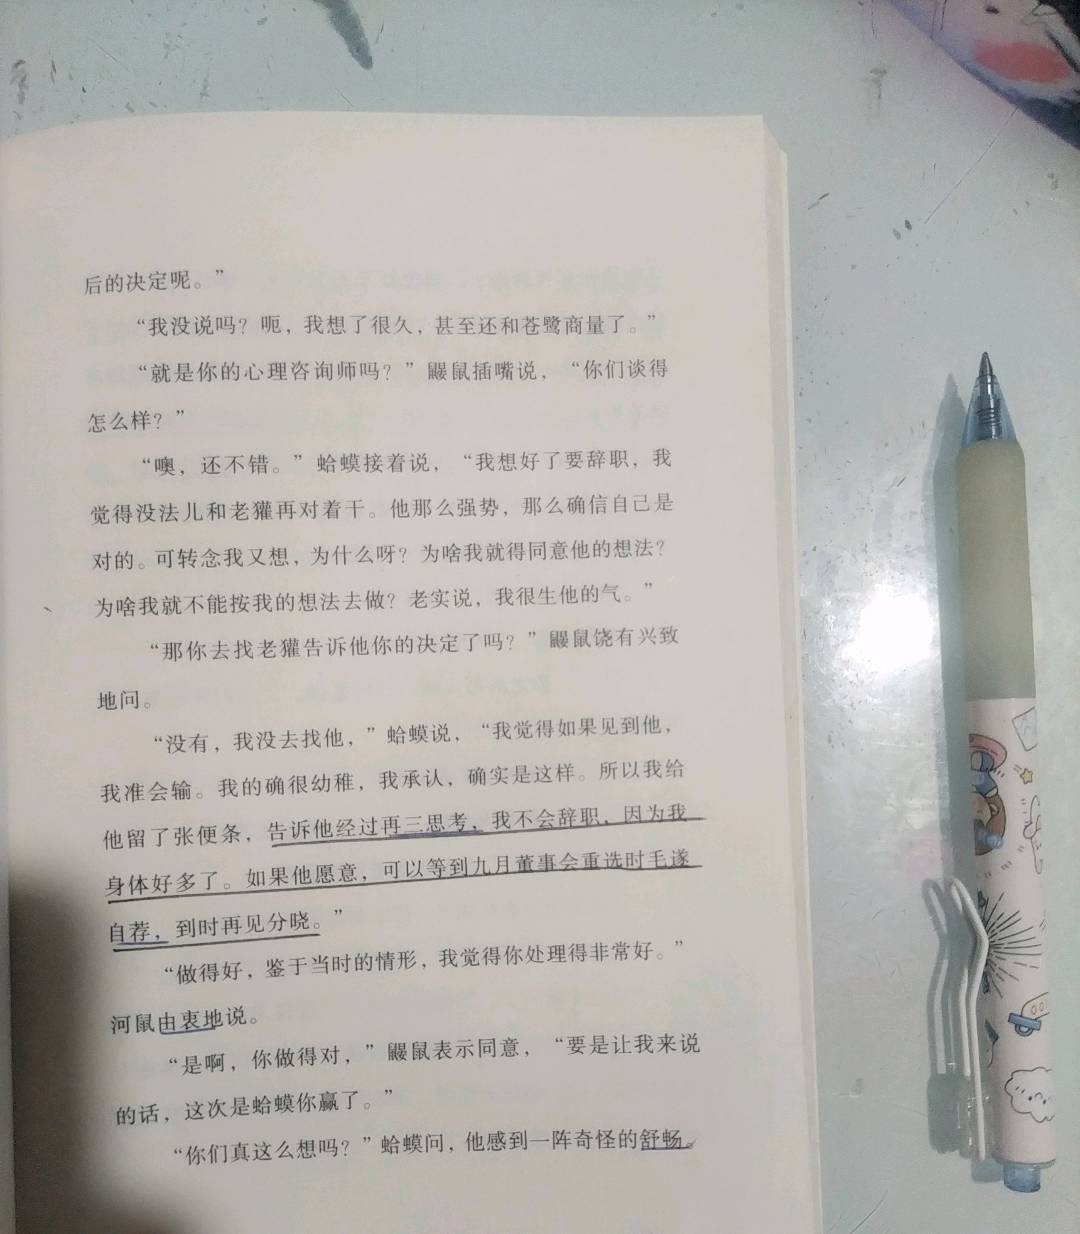 后的决定呢。”
“我没说吗？呃，我想了很久，甚至还和苍鹭商量了。”
“就是你的心理咨询师吗？”鼹鼠插嘴说，“你们谈得
怎么样？”
“噢，还不错。”蛤蟆接着说，“我想好了要辞职，我
觉得没法儿和老獾再对着干。他那么强势，那么确信自己是
对的。可转念我又想，为什么呀？为啥我就得同意他的想法？
为啥我就不能按我的想法去做？老实说，我很生他的气。”
“那你去找老獾告诉他你的决定了吗？”鼹鼠饶有兴致
地问。
“没有，我没去找他，”蛤蟆说，“我觉得如果见到他，
我准会输。我的确很幼稚，我承认，确实是这样。所以我给
他留了张便条，告诉他经过再三思考，我不会辞职，因为我
身体好多了。如果他愿意，可以等到九月董事会重选时毛遂
自荐，到时再见分晓。”
“做得好，鉴于当时的情形，我觉得你处理得非常好。”
河鼠由衷地说。
“是啊，你做得对，”鼹鼠表示同意，“要是让我来说
的话，这次是蛤蟆你赢了。”
“你们真这么想吗？”蛤蟆问，他感到一阵奇怪的舒畅。